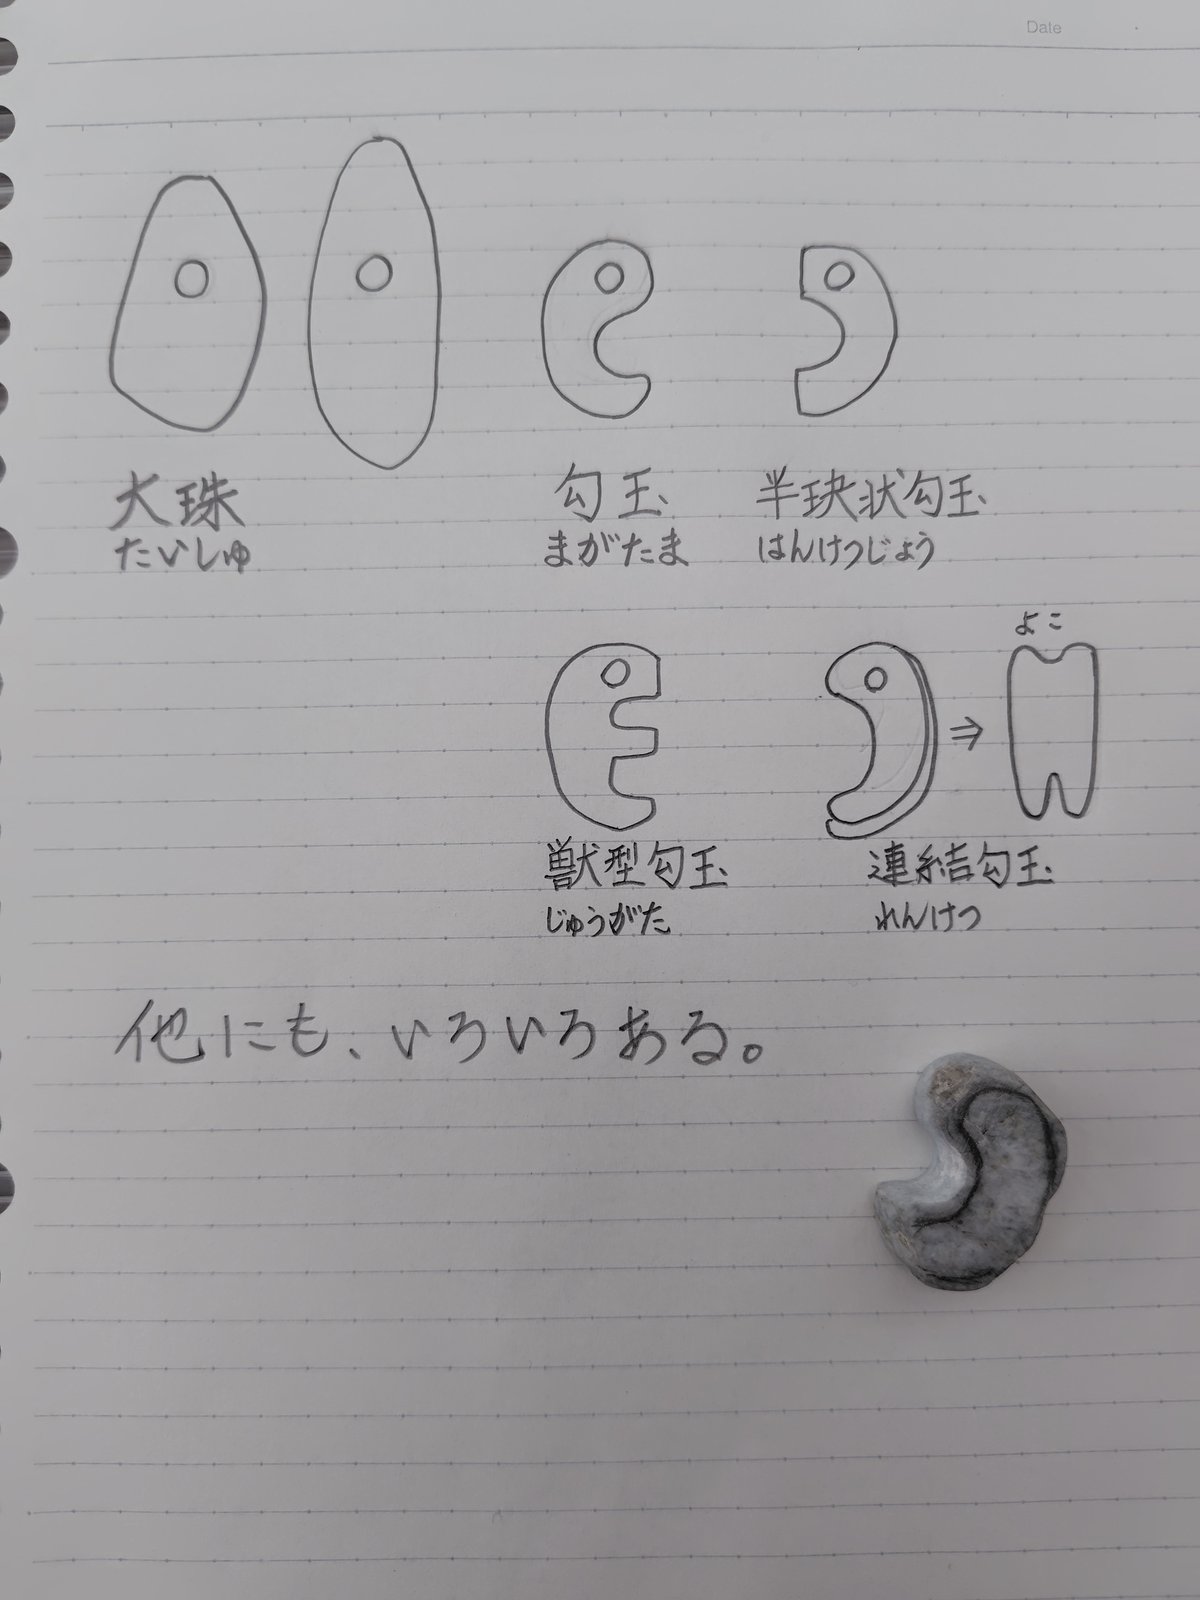 Date
大珠
たいしゅ
勾玉
まがたま
半玦状勾玉
はんけつじょう
よこ
⇒
獣型勾玉
じゅうがた
連結勾玉
れんけつ
他にも、いろいろある。